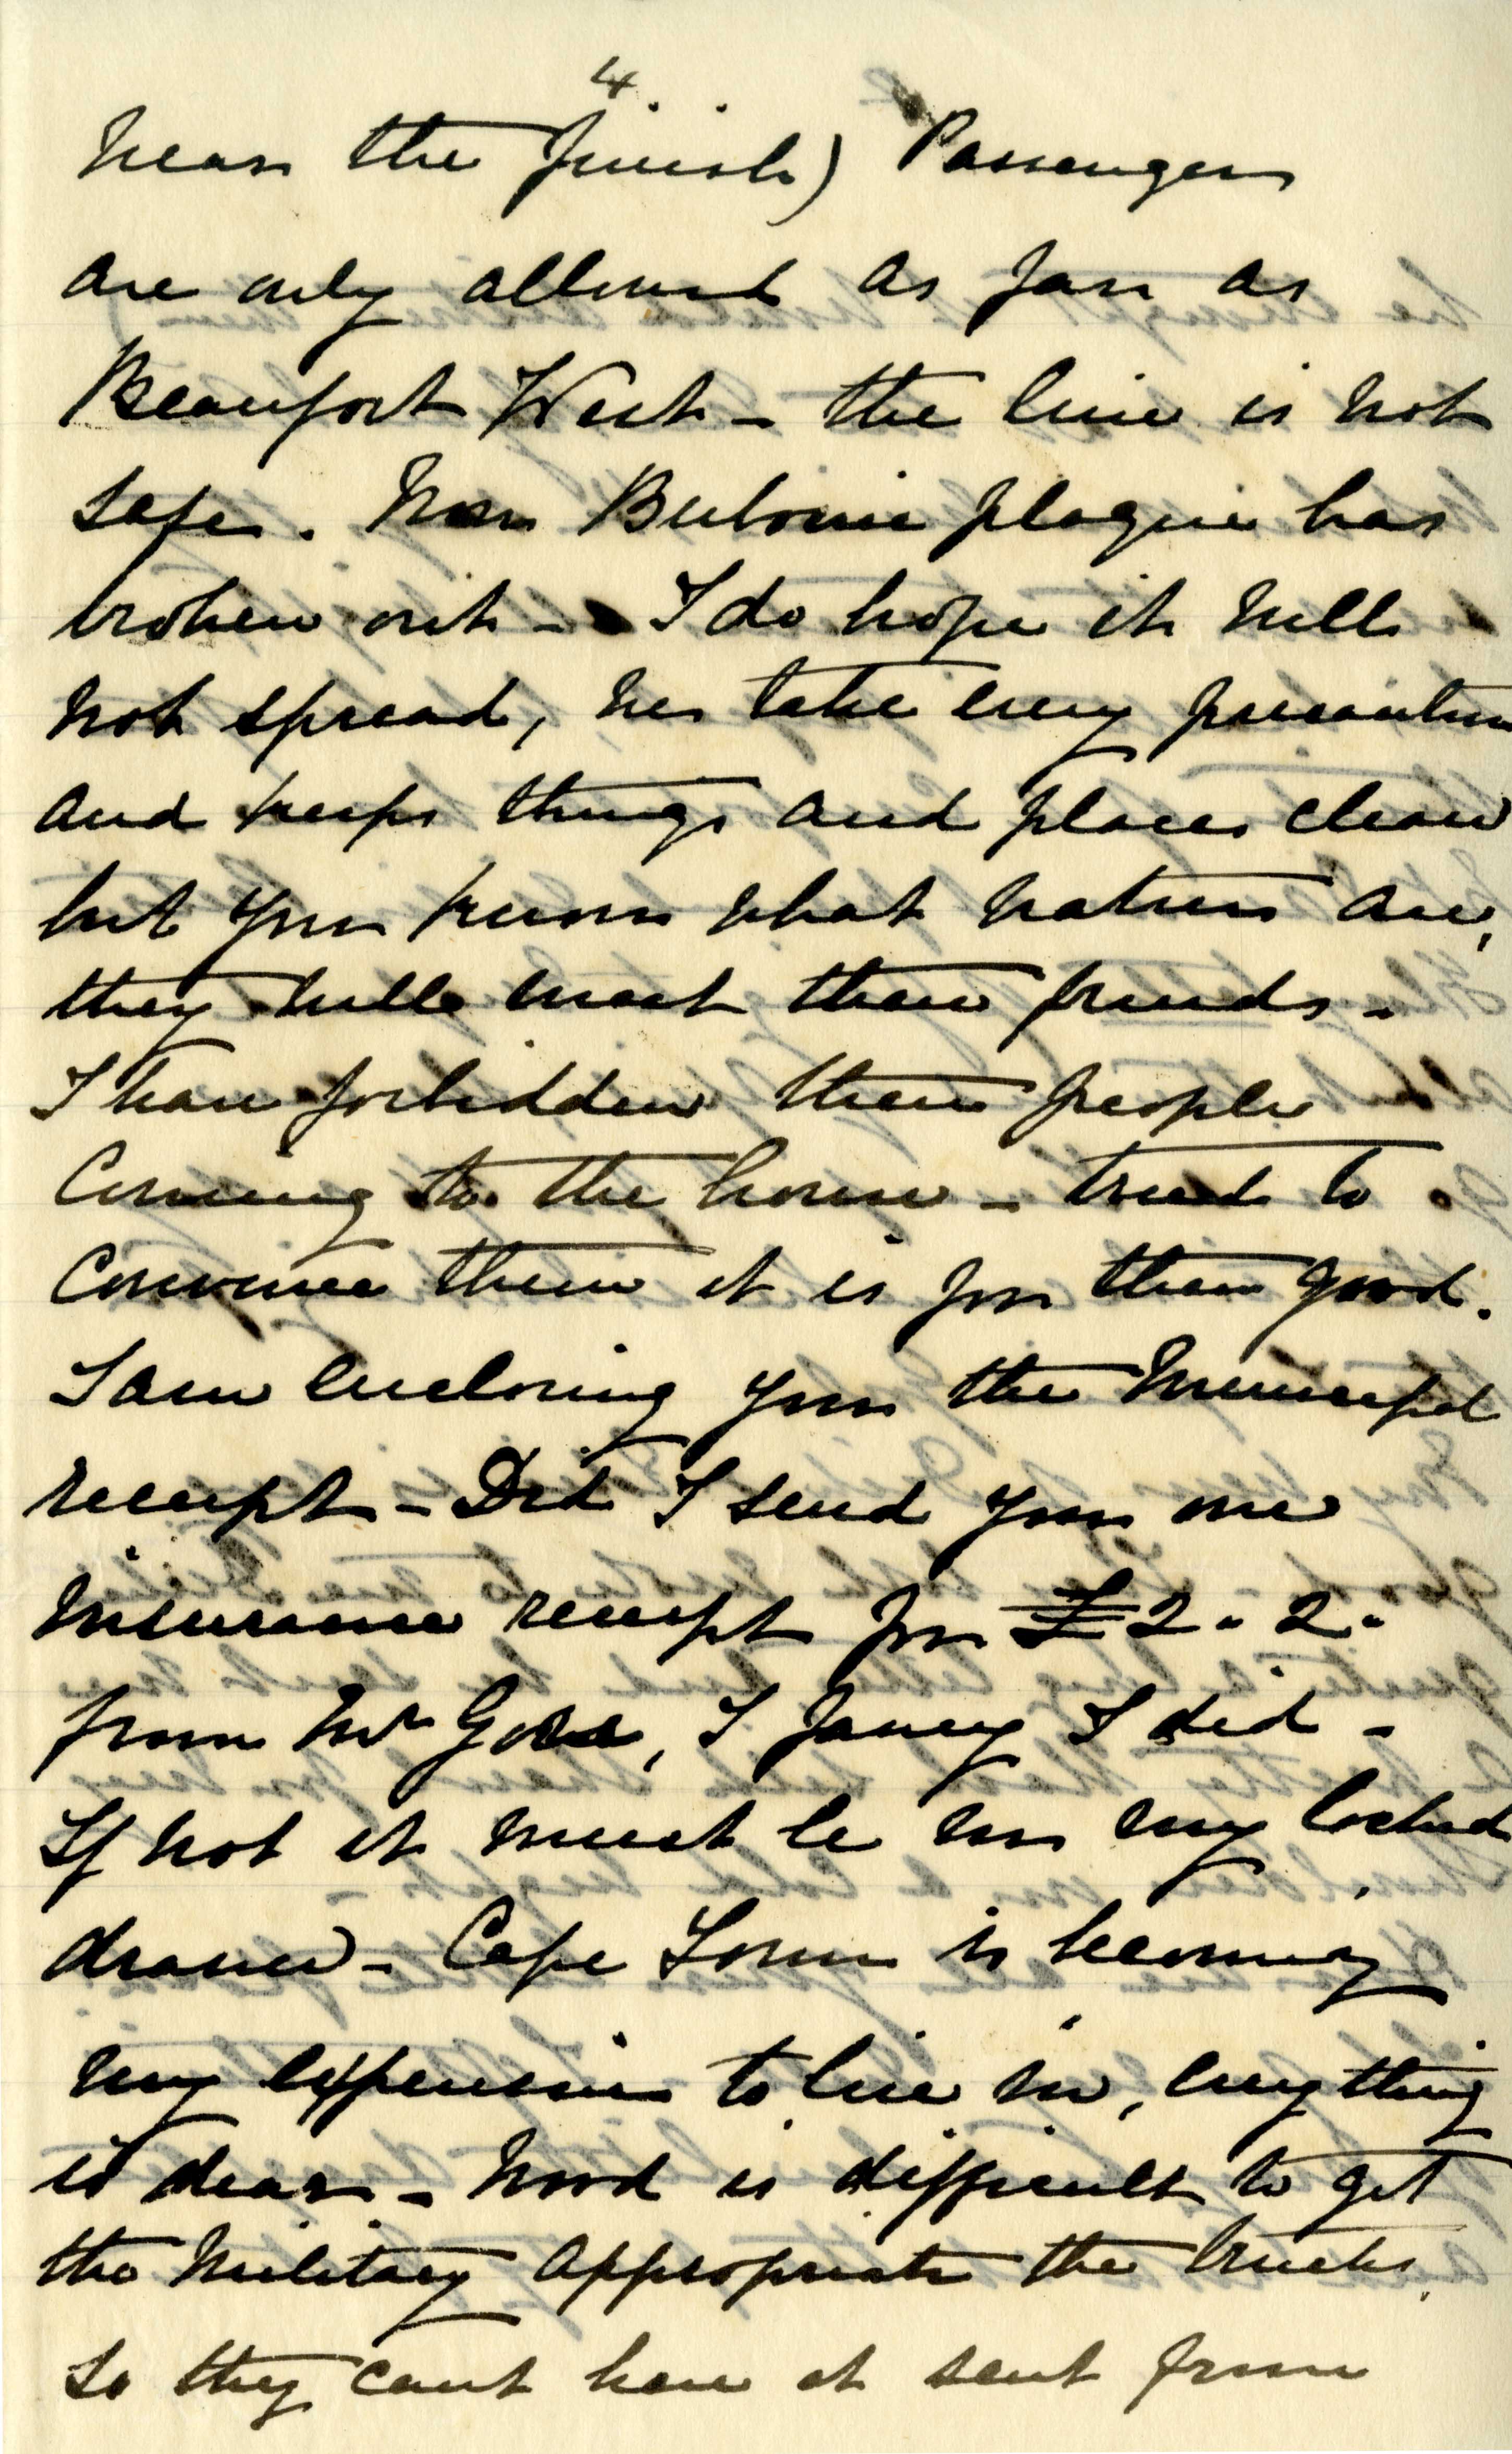 4.
near the finish) Passengers
are only allowed as far as
Beaufort West - the line is not
safe. Now Bubonic plague has
broken out - I do hope it will
not spread, we take every precaution
and keep things and places clean
but you know what natives are,
they will meet their friends -
I have forbidden their people
Coming to the house - tried to
Convince them it is for their good.
I am enclosing you the Municipal
receipt - Did I send you one
Insurance receipt for £2. 2.
from Mr , I fancy I did -
If not it must be in my locked
drawer - Cape Town is becoming
very expensive to live in, everything
is dear - Wood is difficult to get
the Military appropriate the trucks.
So they cant have it sent from